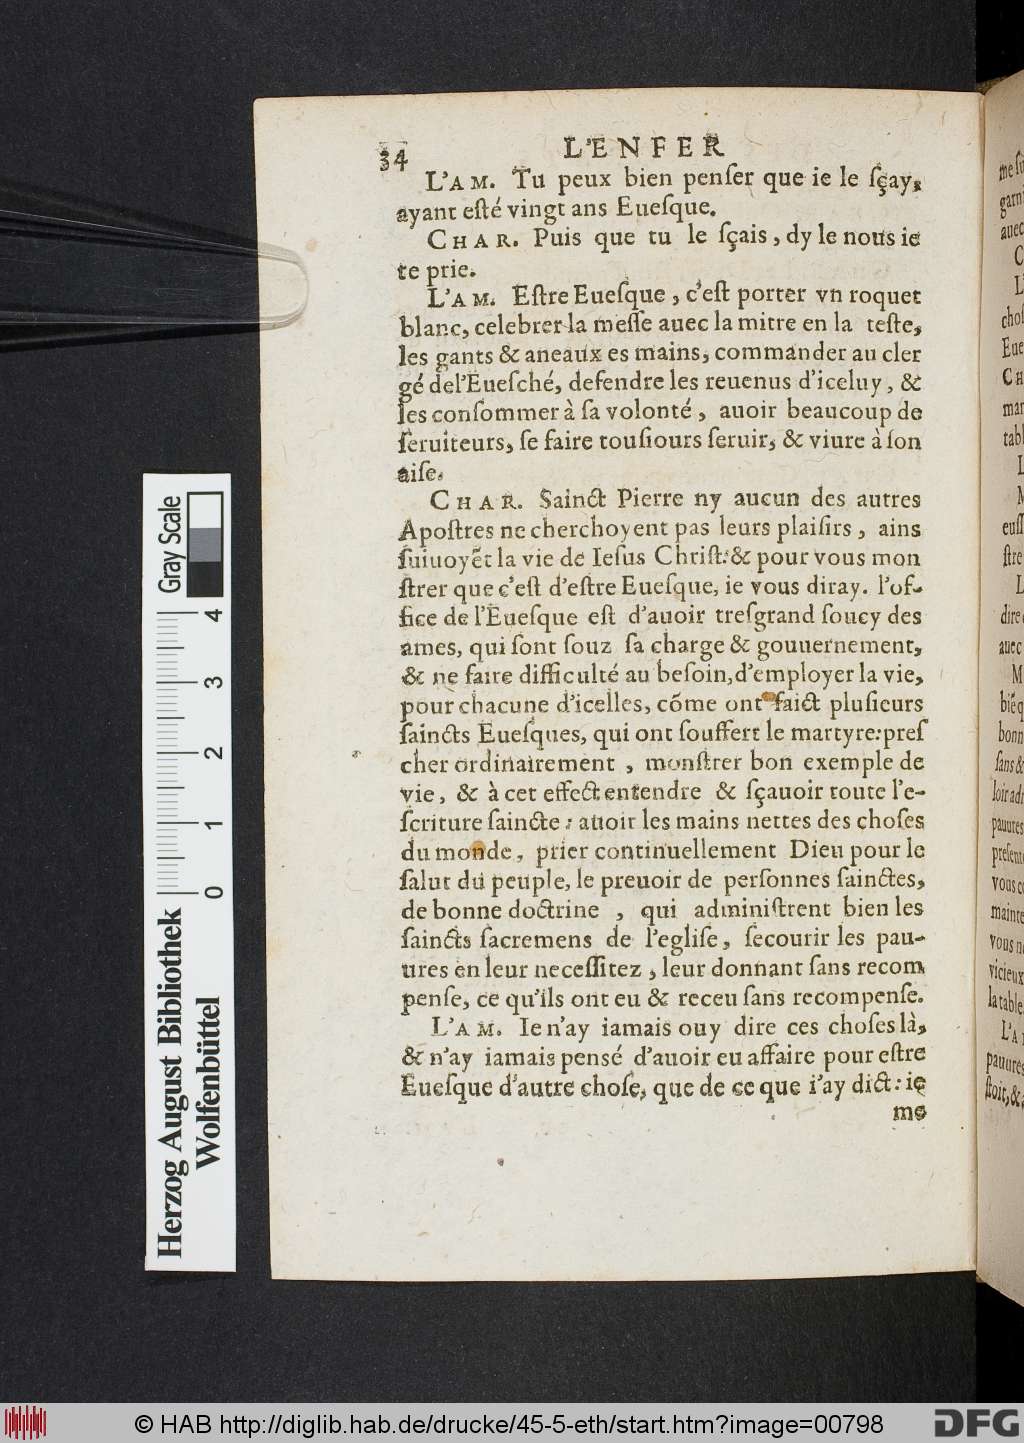 34
L'ENFER
L'AM. Tu peux bien penſer que ie le ſçay,
ayant eſté vingt ans Eueſque.
CHAR. Puis que tu le ſçais, dy le nous ie
te prie.
L'AM. Eſtre Eueſque, c'eſt porter vn roquet
blanc, celebrer la meſſe auec la mitre en la teſte,
les gants & aneaux es mains, commander au cler
gé del'Eueſché, defendre les reuenus d'iceluy, &
les conſommer à ſa volonté, auoir beaucoup de
ſeruiteurs, ſe faire touſiours ſeruir, & viure à ſon
aiſe.
CHAR. Sainct Pierre ny aucun des autres
Apoſtres ne cherchoyent pas leurs plaiſirs, ains
ſuiuoyẽt la vie de Ieſus Chriſt: & pour vous mon
ſtrer que c'eſt d'eſtre Eueſque, ie vous diray. l'of-
fice de l'Eueſque eſt d'auoir treſgrand ſoucy des
ames, qui ſont ſouz ſa charge & gouuernement,
& ne faire difficulté au beſoin, d'employer la vie,
pour chacune d'icelles, cõme ont faict pluſieurs
ſaincts Eueſques, qui ont ſouffert le martyre: preſ
cher ordinairement, monſtrer bon exemple de
vie, & à cet effect entendre & ſçauoir toute l'e-
ſcriture ſaincte: auoir les mains nettes des choſes
du monde, prier continuellement Dieu pour le
ſalut du peuple, le preuoir de perſonnes ſainctes,
de bonne doctrine, qui adminiſtrent bien les
ſaincts ſacremens de l'egliſe, ſecourir les pau-
ures en leur neceſſitez, leur donnant ſans recom
penſe, ce qu'ils ont eu & receu ſans recompenſe.
L'AM. Ie n'ay iamais ouy dire ces choſes là,
& n'ay iamais penſé d'auoir eu affaire pour eſtre
Eueſque d'autre choſe, que de ce que i'ay dict: ie
me
Gray Scale
0 1 2 3 4
Herzog August Bibliothek
Wolfenbüttel
© HAB http://diglib.hab.de/drucke/45-5-eth/start.htm?image=00798
DFG